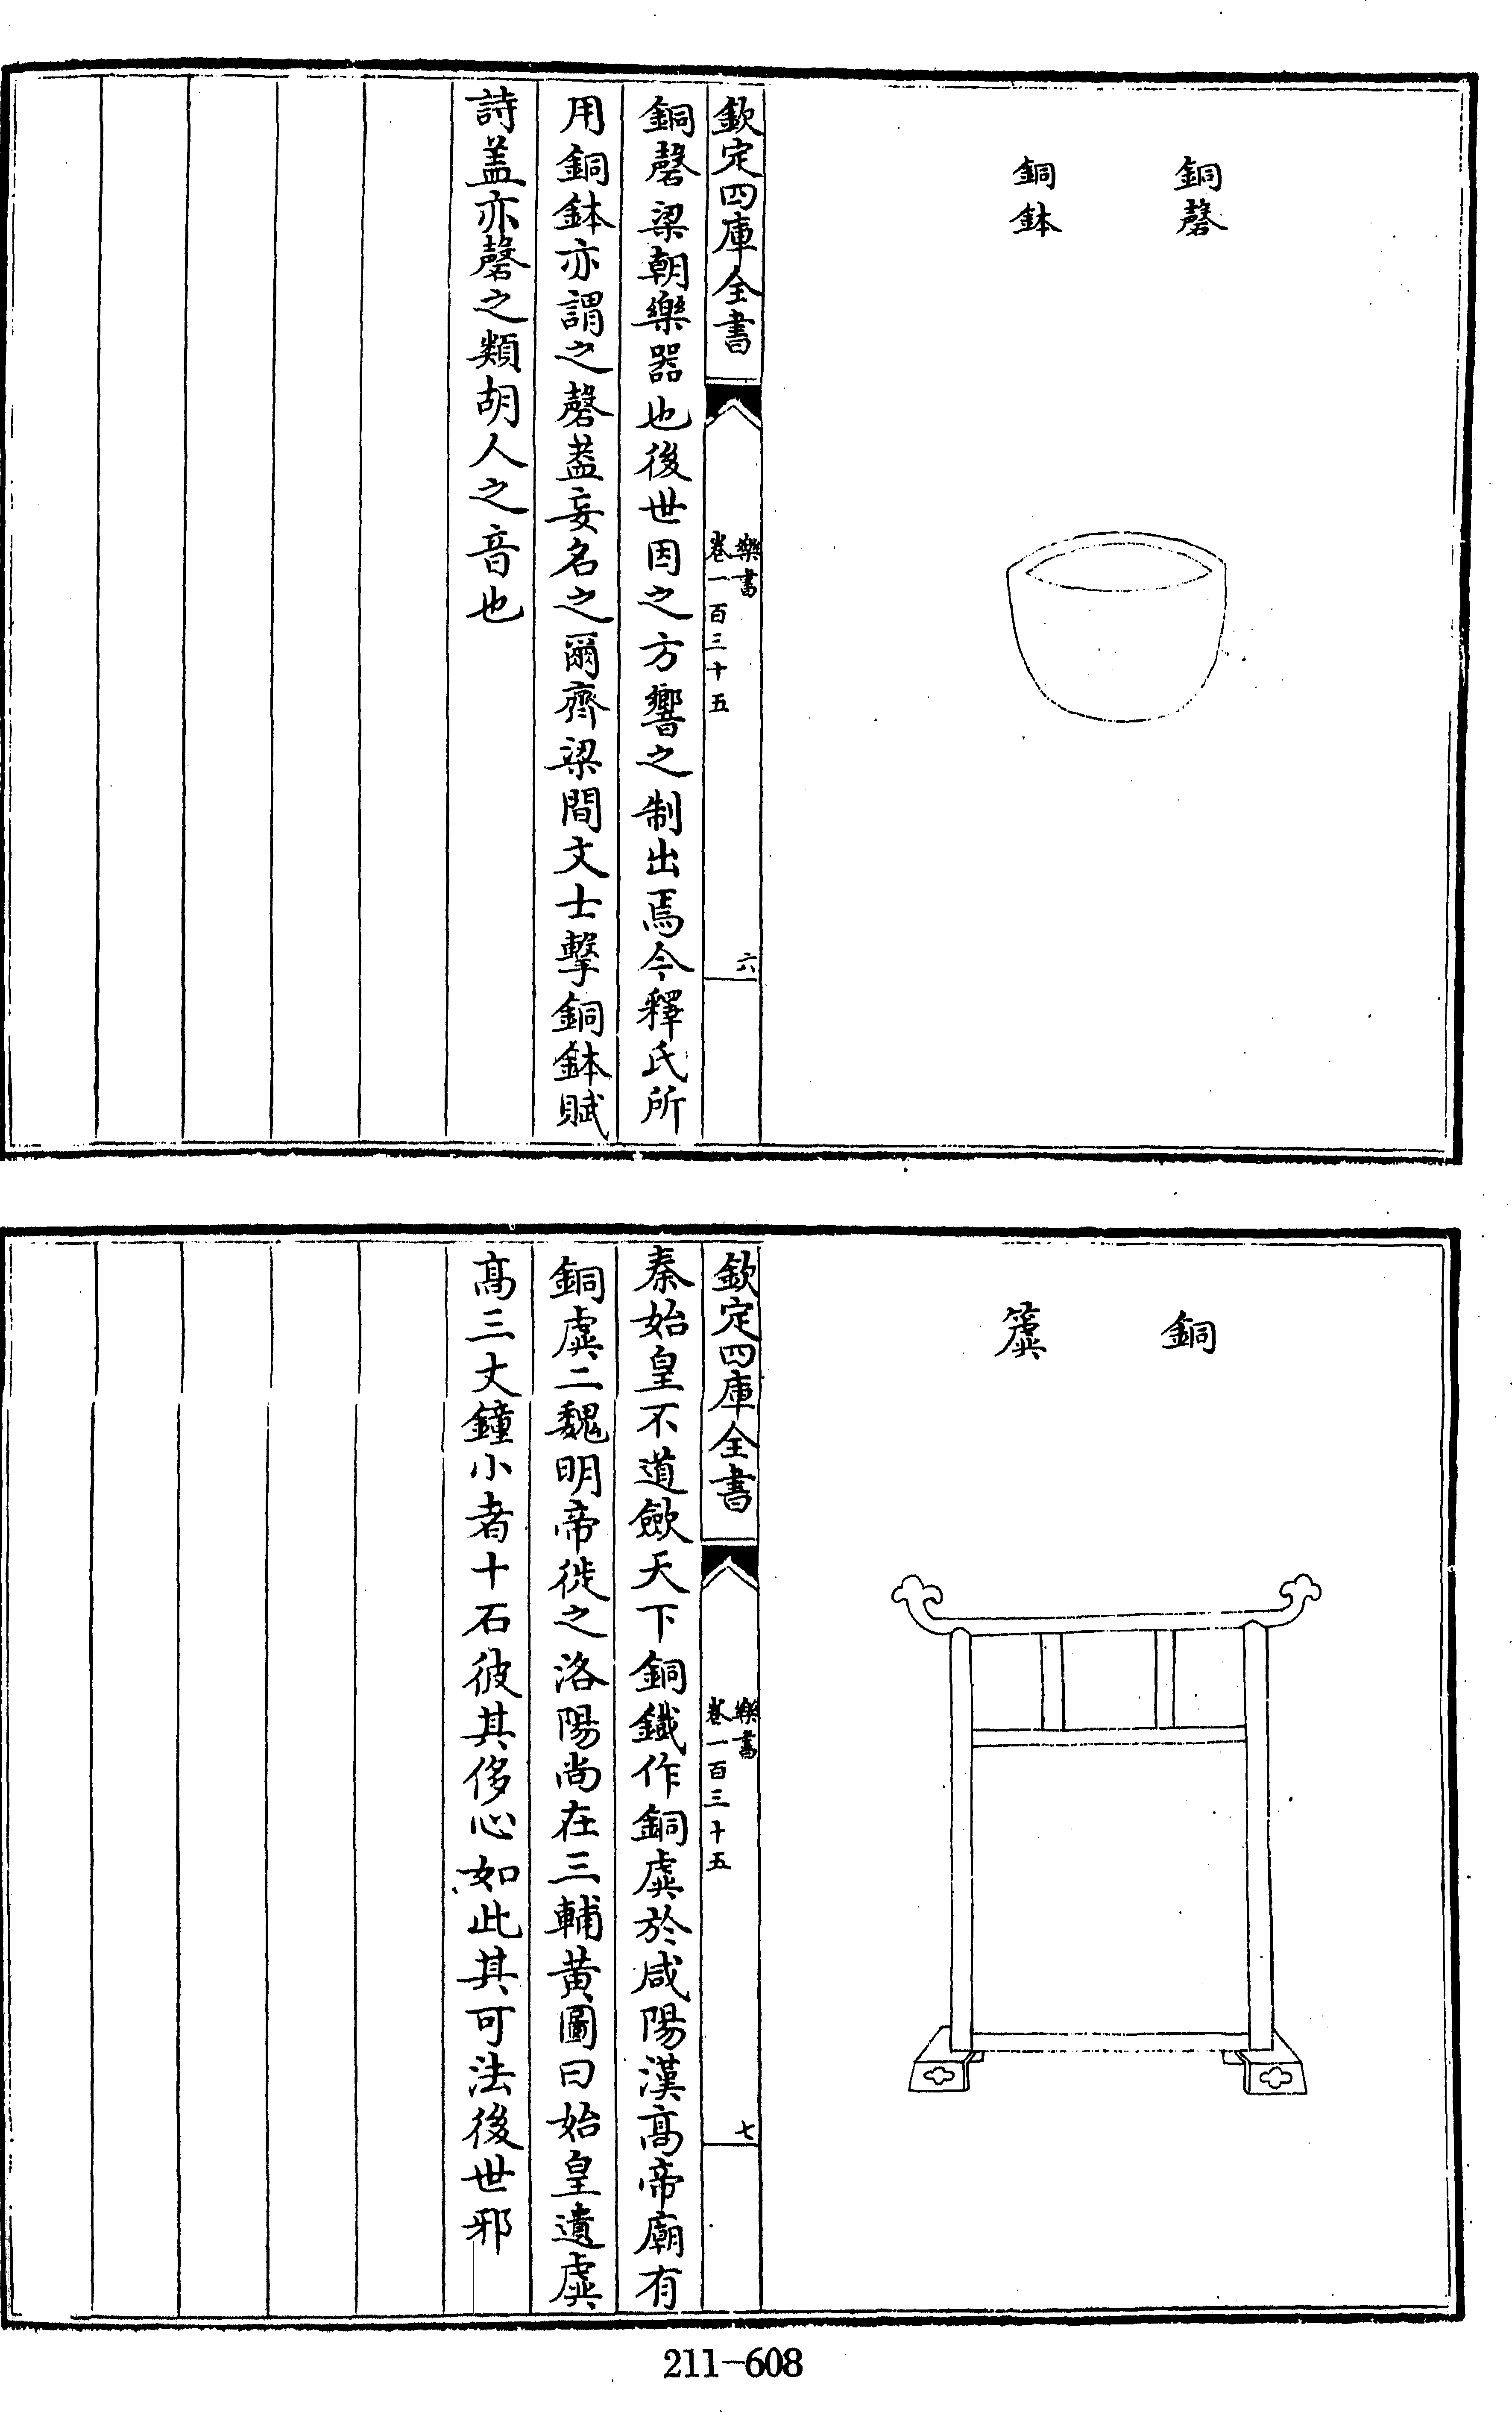 銅磬
銅鉢
欽定四庫全書
樂書
卷一百三十五
六
銅磬梁朝樂器也後世因之方響之制出焉今釋氏所
用銅鉢亦謂之磬葢妄名之爾齊梁間文士擊銅鉢賦
詩盖亦磬之類胡人之音也
銅
簴
欽定四庫全書
樂書
卷一百三十五
七
秦始皇不道歛天下銅鐵作銅虡於咸陽漢高帝廟有
銅虡二魏明帝徙之洛陽尚在三輔黄圖曰始皇遺虡
高三丈鐘小者十石彼其侈心如此其可法後世邪
211-608